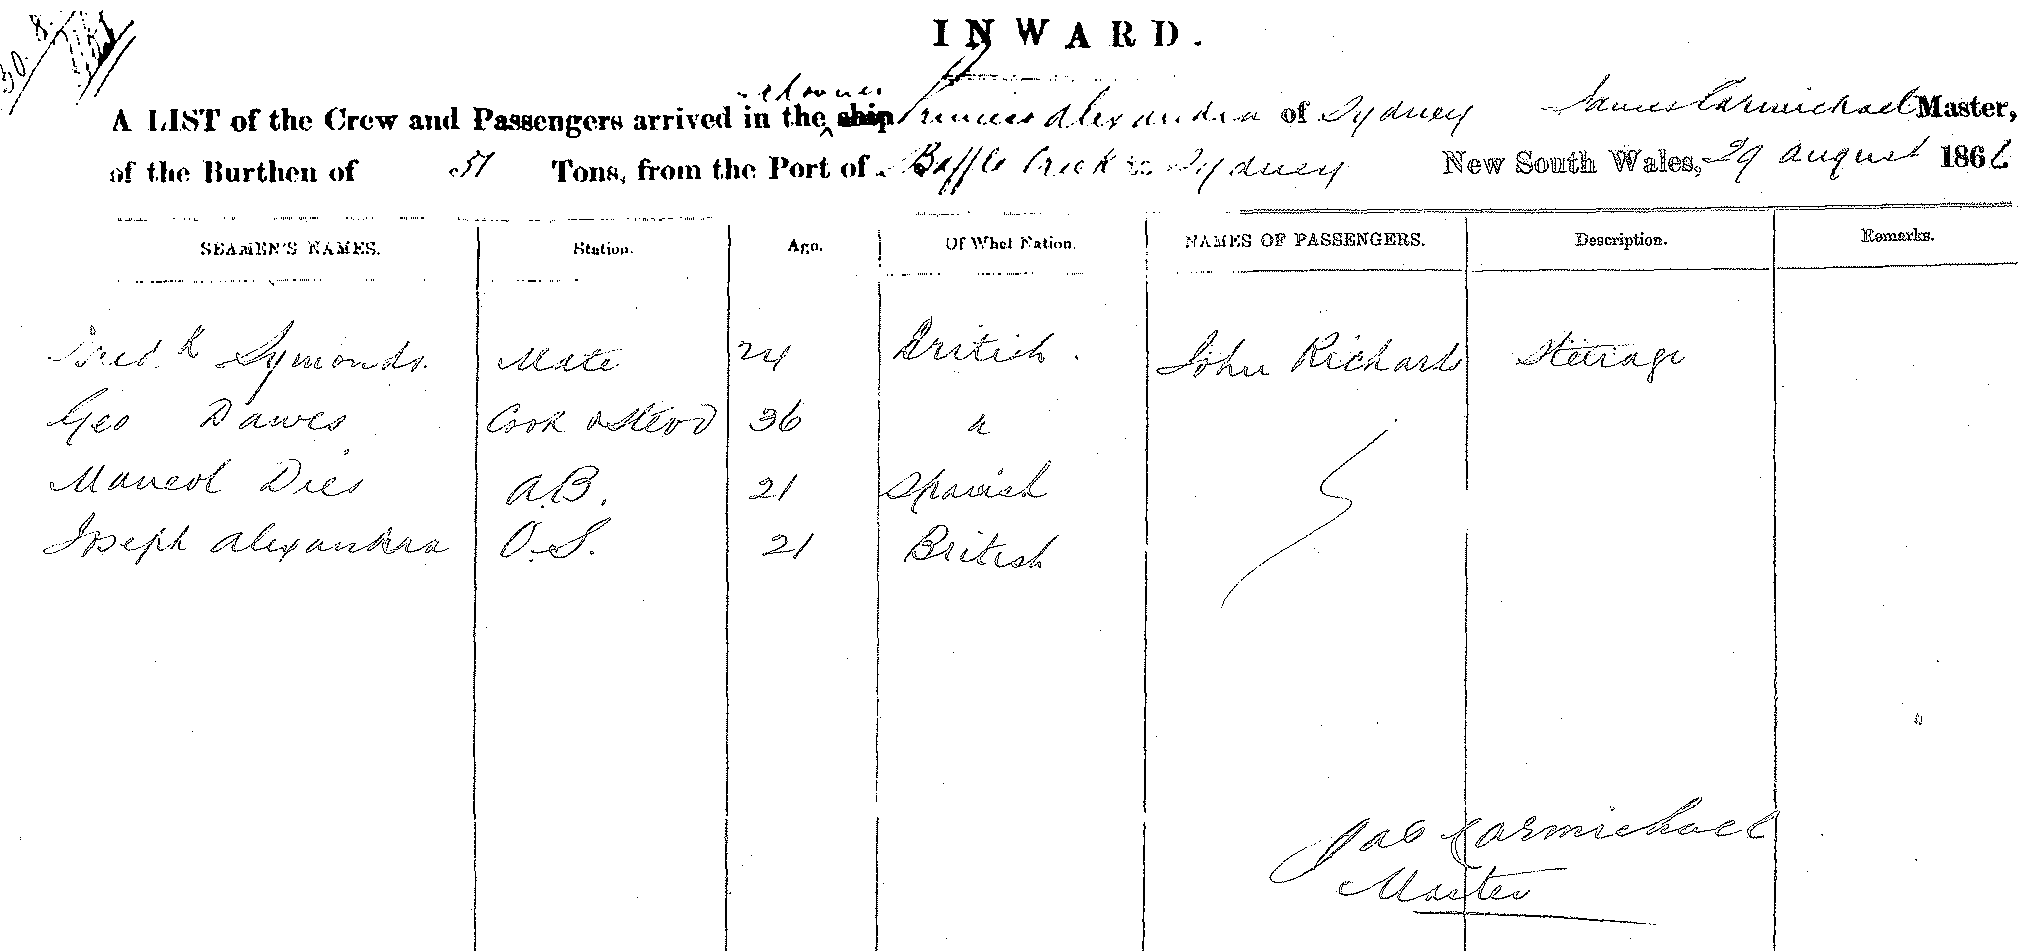 30.8.
INWARD.
A LIST of the Crew and Passengers arrived in the ship schooner Princess Alexandra of Sydney James Carmichael Master,
of the Burthen of 51 Tons, from the Port of Baffle Creek to Sydney New South Wales, 29 August 1866
SEAMEN'S NAMES. Station. Age. Of What Nation. NAMES OF PASSENGERS. Description. Remarks.
Fredk Symonds. Mate 24 British. John Richards Steerage
Geo Dawes Cook & Stewd 36 "
Maneol Dies A.B. 21 Spanish
Joseph Alexandra O.S. 21 British
Jas Carmichael
Master